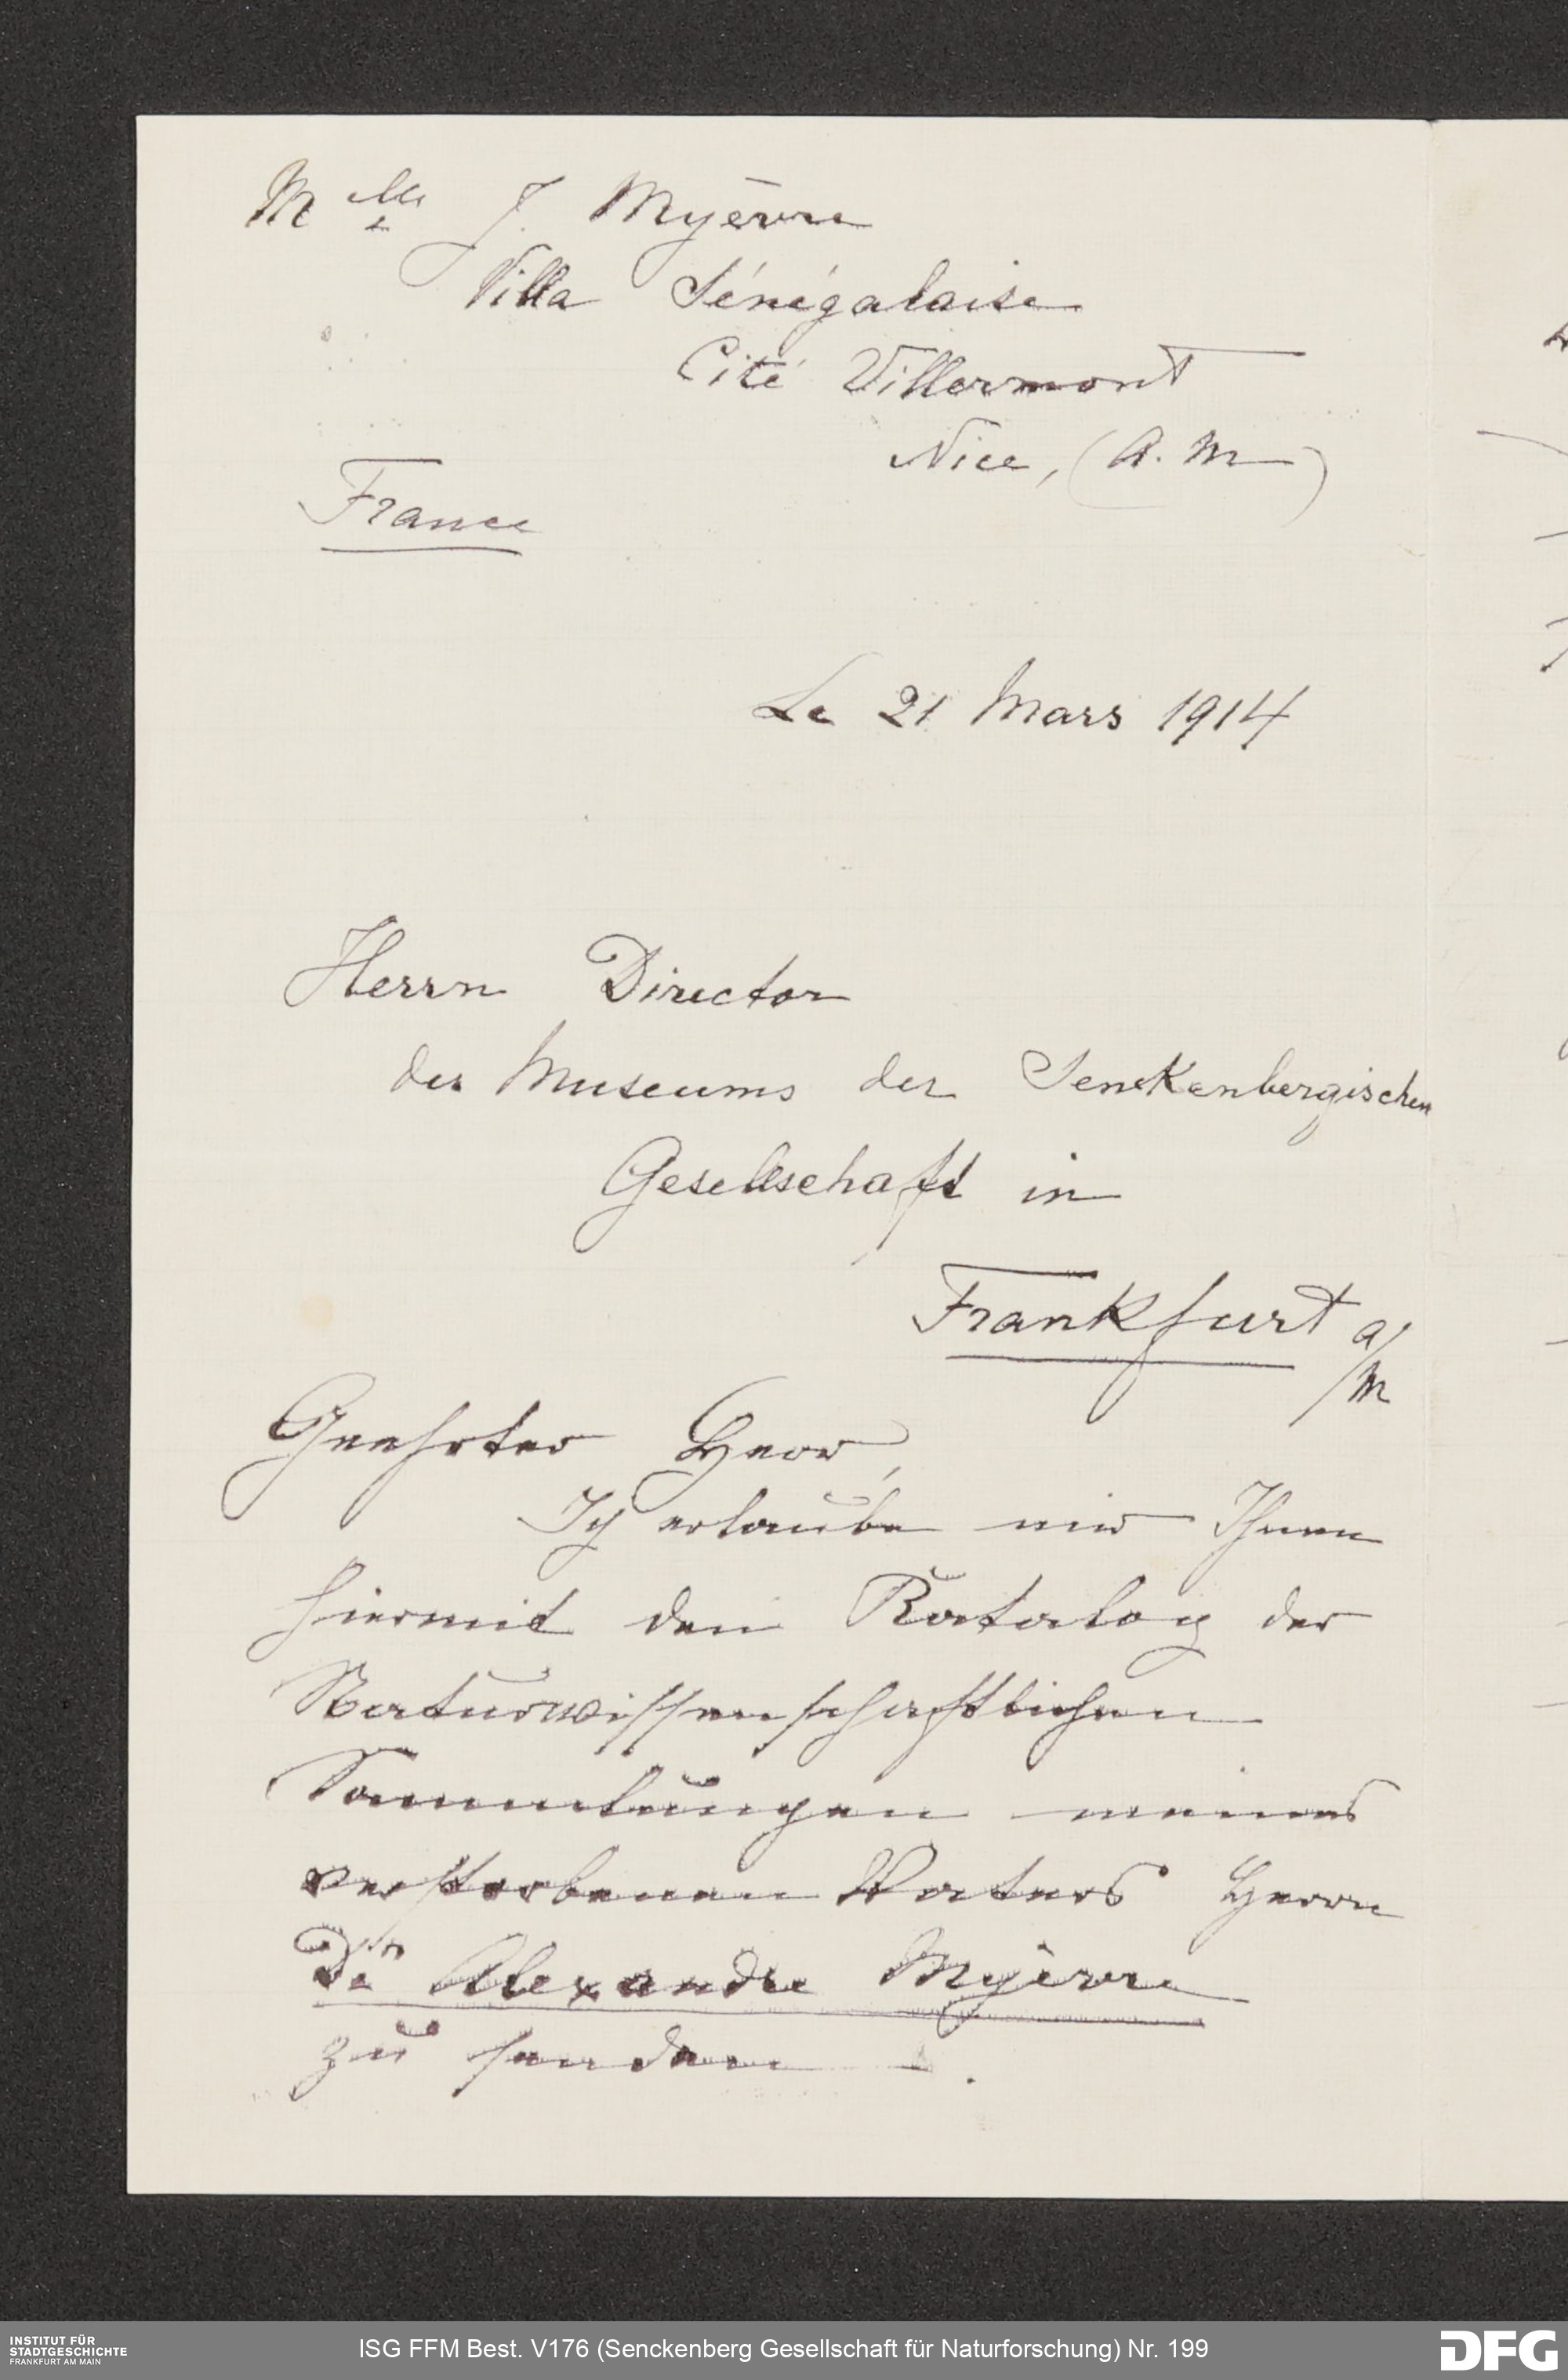 Mlle J. Myèvre
Villa Sénégalaise
Cité Villermont
Nice, (A. M)
France
Le 21 Mars 1914
Herrn Director
des Museums der Senckenbergischen
Gesellschaft in
Frankfurt a/M
Geehrter Herr,
Ich erlaube mir Ihnen
hiermit den Katalog der
Naturwissenschaftlichen
Sammlungen meines
verstorbenen Vaters Herrn
Dr Alexandre Myèvre
zu senden.
INSTITUT FÜR
STADTGESCHICHTE
FRANKFURT AM MAIN
ISG FFM Best. V176 (Senckenberg Gesellschaft für Naturforschung) Nr. 199
DFG